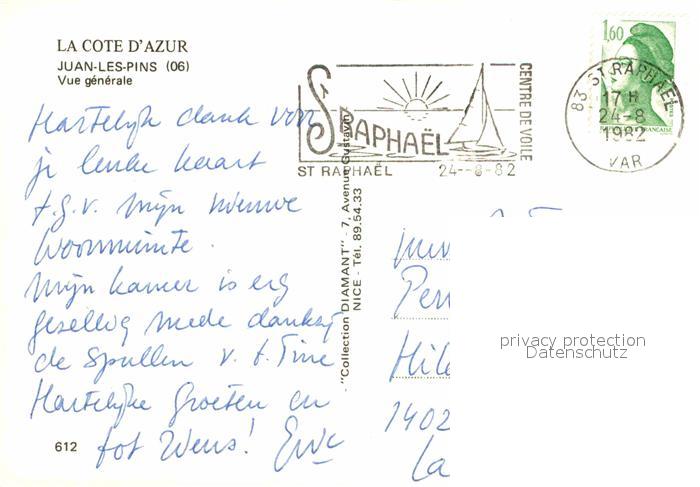 LA COTE D'AZUR
JUAN-LES-PINS (06)
Vue générale
Hartelijk dank voor
je leuke kaart
t.g.v. mijn nieuwe
woonruimte.
Mijn kamer is erg
gezellig mede dankzij
de spullen v. t. Tine
Hartelijke groeten en
tot Wens!
612
ST RAPHAËL
CENTRE DE VOILE
ST RAPHAËL 24--8-82
"Collection DIAMANT" - 7, Avenue Gustavin
NICE - Tél. 89.54.33
1,60
83 ST RAPHAEL
17 H
24-8
1982
VAR
FRANÇAISE
Hil
1402
La
privacy protection
Datenschutz